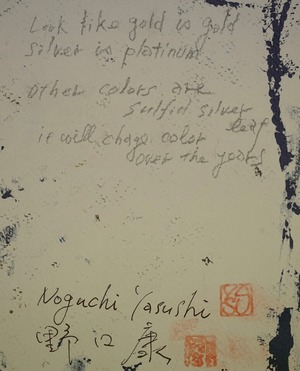 Look like gold is gold
silver is platinum
other colors are
sulfid silver
leaf
it will chage color
over the years
Noguchi Yasushi
野口 康